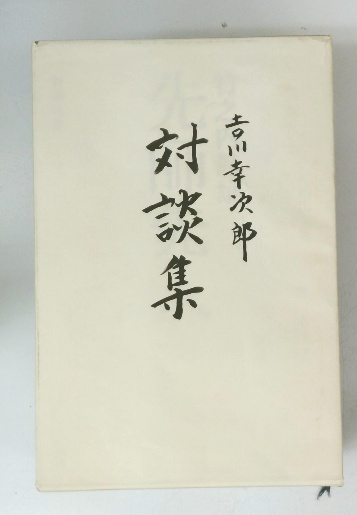 吉川幸次郎
対談集